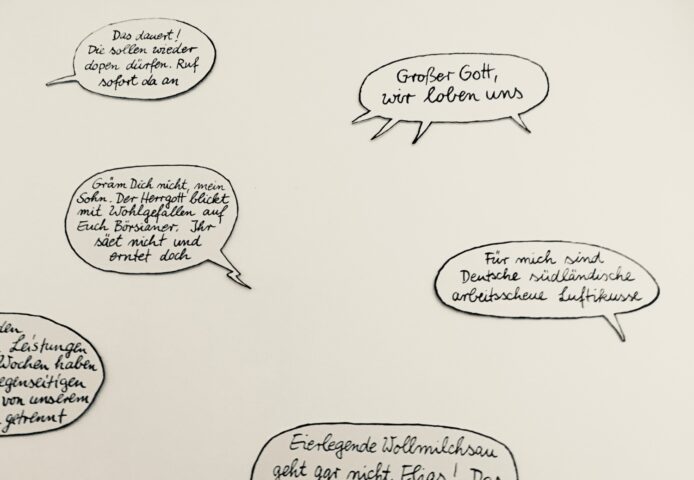 Das dauert!
Die sollen wieder
dopen dürfen. Ruf
sofort da an
Großer Gott,
wir loben uns
Gräm Dich nicht, mein
Sohn. Der Herrgott blickt
mit Wohlgefallen auf
Euch Börsianer. Ihr
säet nicht und
erntet doch
Für mich sind
Deutsche südländische
arbeitsscheue Luftikusse
den
Leistungen
Wochen haben
egenseitigen
von unserem
getrennt
Eierlegende Wollmilchsau
geht gar nicht, Elias! Das